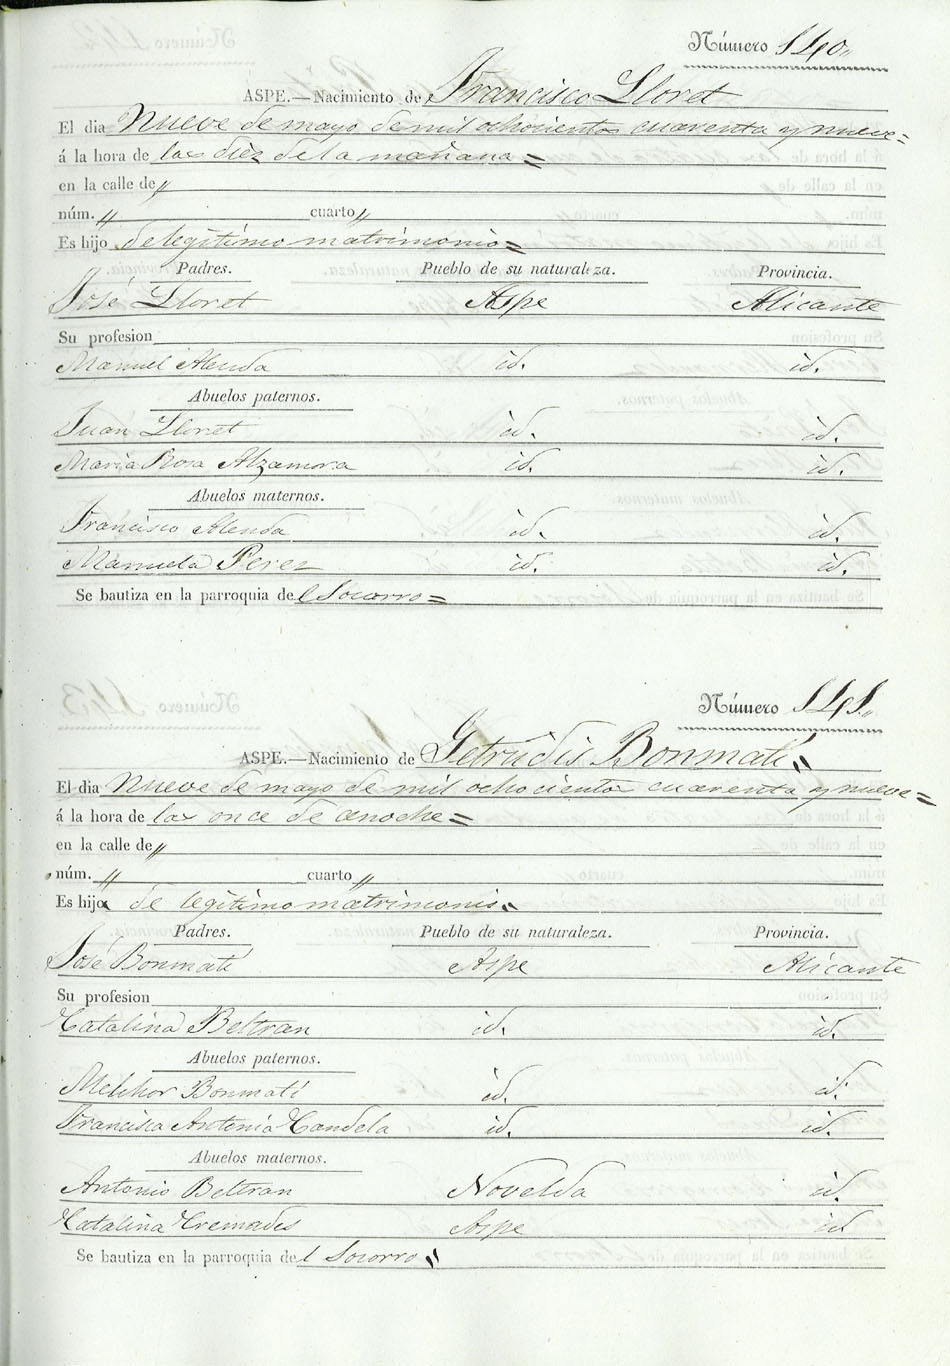 Número 140„
ASPE.—Nacimiento de Francisco Lloret
El dia Nueve de mayo de mil ochocientos cuarenta y nueve=
á la hora de las diez de la mañana=
en la calle de „
núm. „ cuarto „
Es hijo de legitimo matrimonio=
Padres. Pueblo de su naturaleza. Provincia.
José Lloret Aspe Alicante
Su profesion
Manuel Alenda id. id.
Abuelos paternos.
Juan Lloret id. id.
Maria Rosa Alzamora id. id.
Abuelos maternos.
Francisco Alenda id. id.
Manuela Perez id. id.
Se bautiza en la parroquia del Socorro=
Número 141„
ASPE.—Nacimiento de Getrudis Bonmatí„
El dia Nueve de mayo de mil ochocientos cuarenta y nueve=
á la hora de las once de anoche=
en la calle de „
núm. „ cuarto „
Es hija de legitimo matrimonio„
Padres. Pueblo de su naturaleza. Provincia.
José Bonmatí Aspe Alicante
Su profesion
Catalina Beltran id. id.
Abuelos paternos.
Melchor Bonmatí id. id.
Francisca Antonia Candela id. id.
Abuelos maternos.
Antonio Beltran Novelda id.
Catalina Cremades Aspe id
Se bautiza en la parroquia del Socorro„